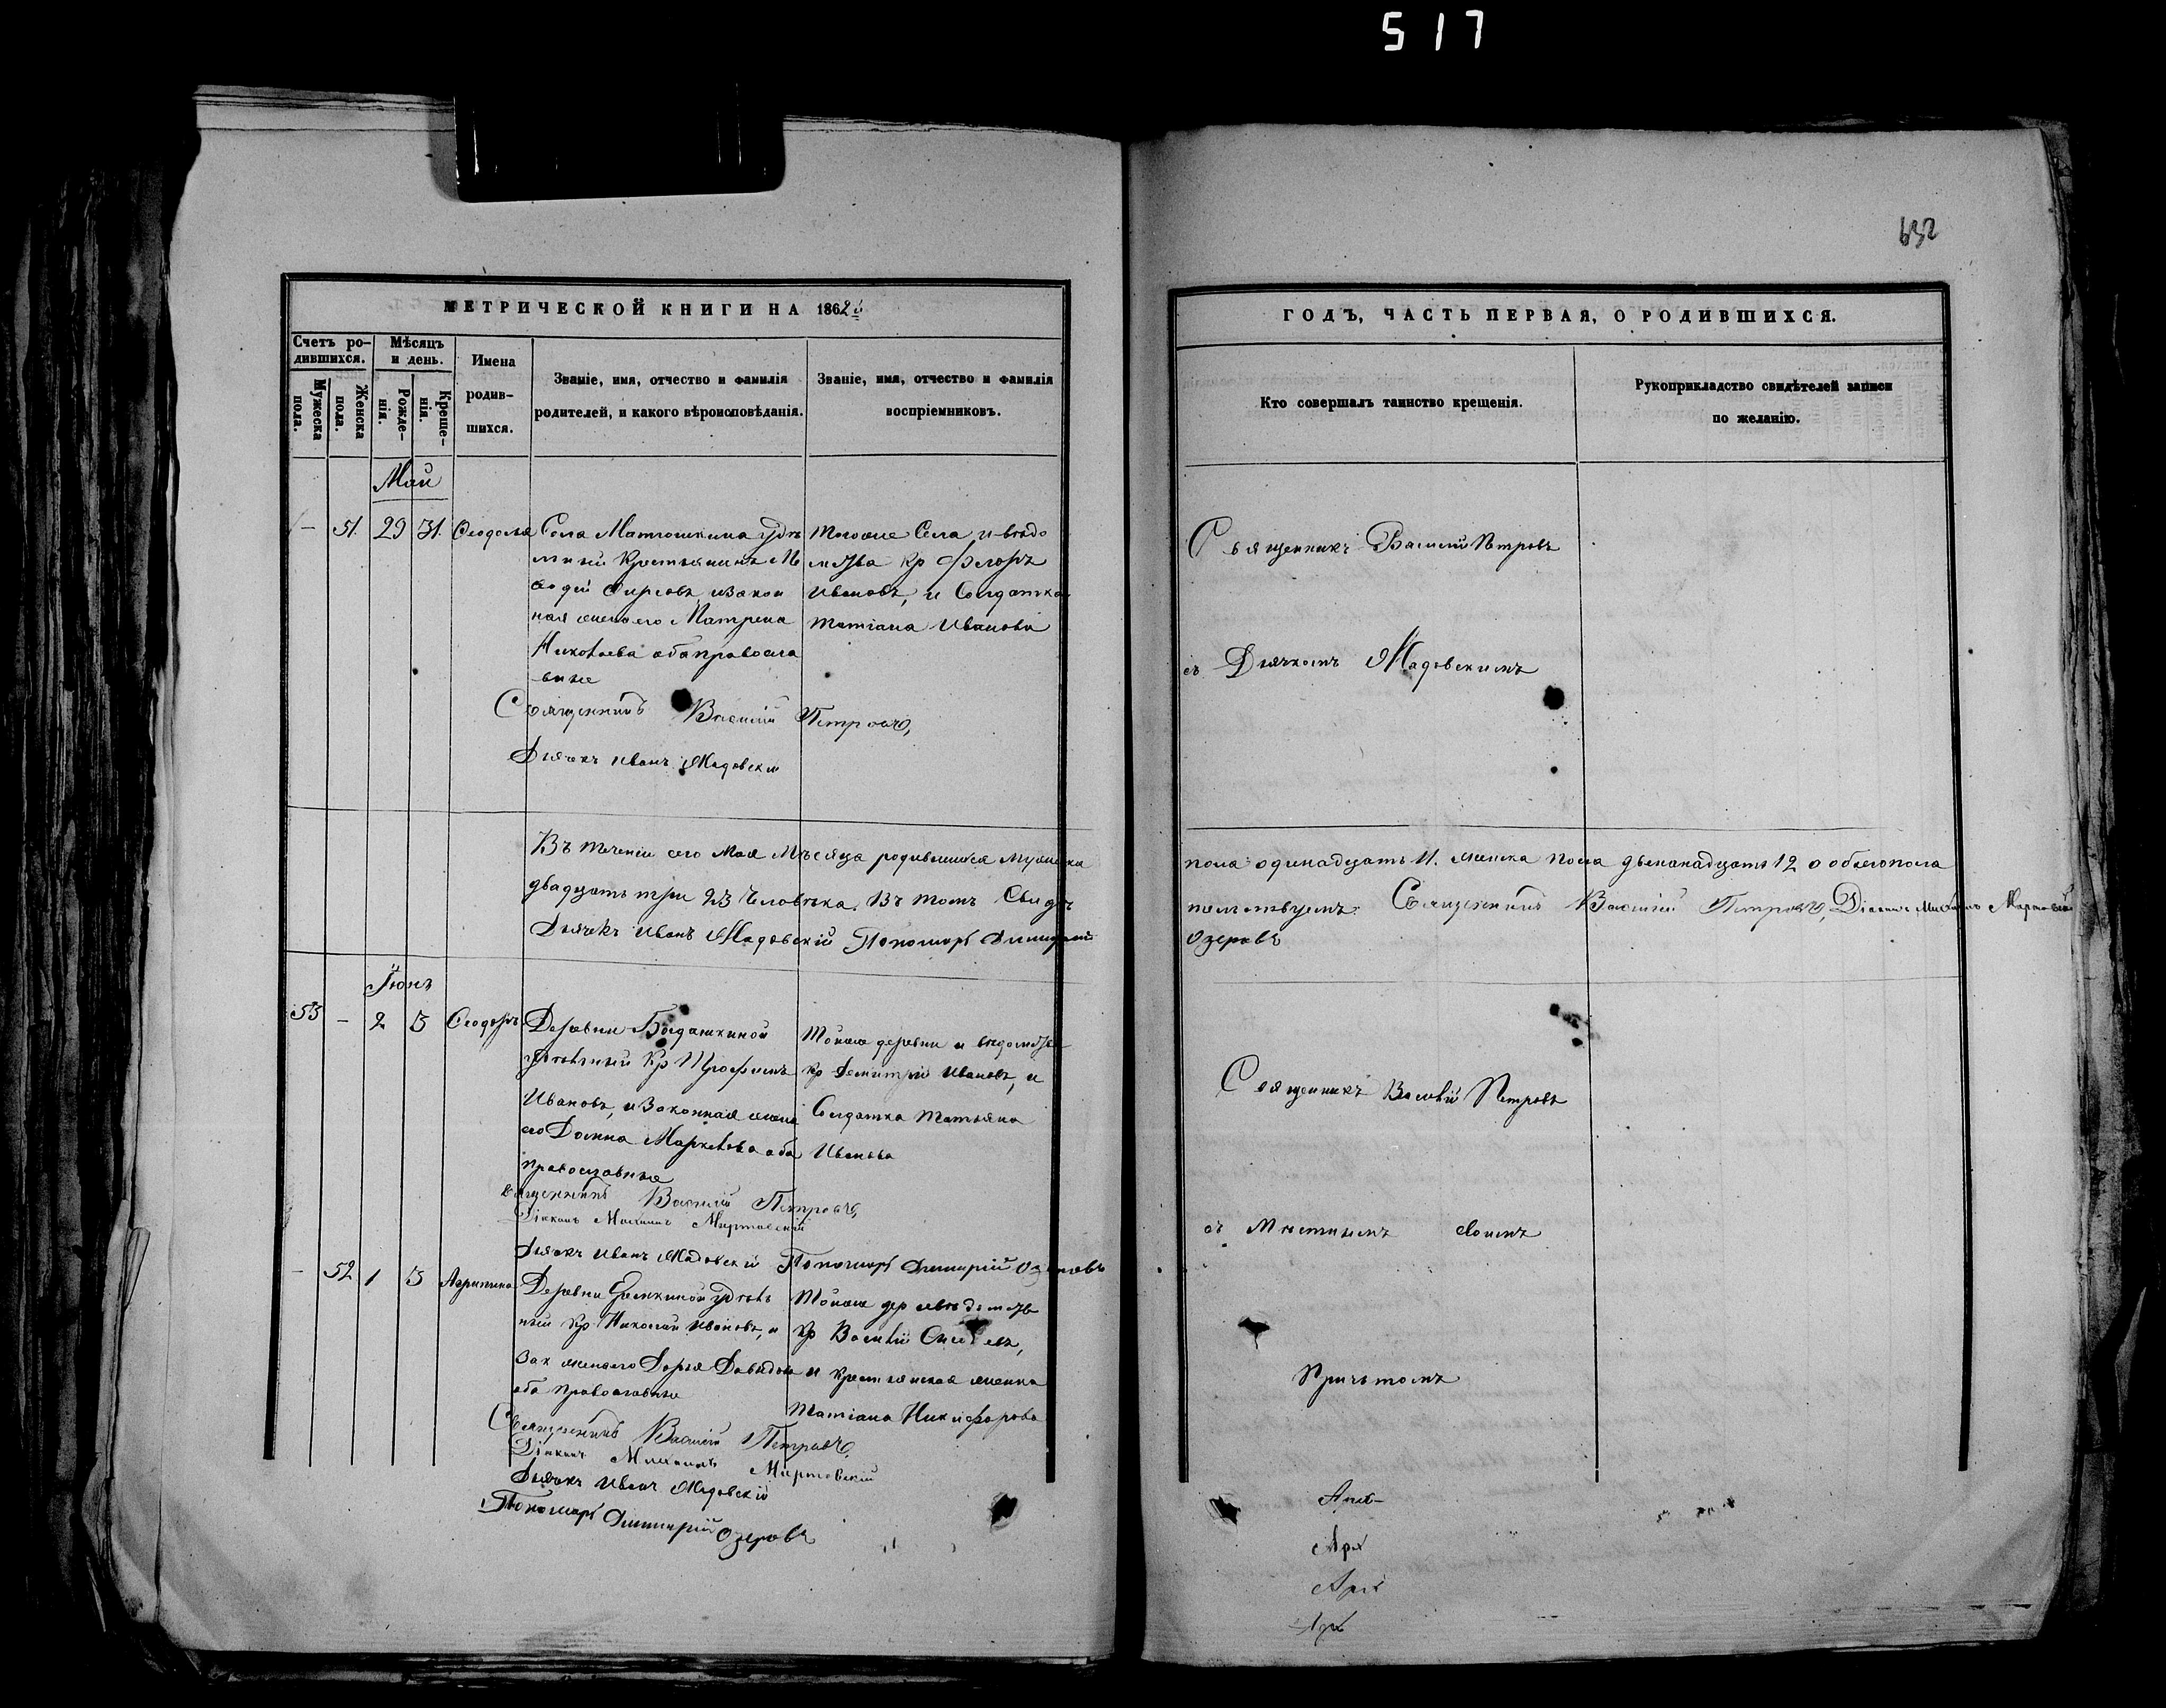 517
632
МЕТРИЧЕСКОЙ КНИГИ НА 1862й
ГОДЪ, ЧАСТЬ ПЕРВАЯ, О РОДИВШИХСЯ.
Счетъ ро-
дившихся.
Мужеска
пола.
Женска
пола.
Мѣсяцъ
и день.
Рожде-
нія.
Креще-
нія.
Имена
родив-
шихся.
Званіе, имя, отчество и фамилія
родителей, и какого вѣроисповѣданія.
Званіе, имя, отчество и фамилія
воспріемниковъ.
Кто совершалъ таинство крещенія.
Рукоприкладство свидѣтелей записи
по желанію.
Май
— 51. 29 31. Ѳеодосья
Села Матюшкина удѣ
льный Крестьянинъ Ме
ѳодій Фирсовъ, изакон
ная жена его Матрена
Николаева оба правосла
вные
Священникъ Василій Петровъ,
Дьячекъ Иванъ Жадовскій
Тогоже Села и вѣдо
мства кр Флоръ
Ивановъ, и Солдатка
Татіана Иванова
Священникъ Василій Петровъ
съ Дьячкомъ Жадовскимъ
Въ теченіи сего Мая Мѣсяца родившихся Мужеска
пола одинадцать 11. женска пола двенанадцать 12 а обоегопола
двадцать три 23 Человѣка. Въ томъ Свидѣ
тельствуемъ: Священникъ Василій Петровъ, Діаконъ Михаилъ Мартовскій
Дьячекъ Иванъ Жадовскій Пономарь Димитрій
Озеровъ
Іюнь
53 — 2 3 Ѳеодоръ
Деревни Богдашкиной
удѣльный Кр Трофимъ
Ивановъ, и Законная жена
его Домна Маркелова оба
православные
Священникъ Василій Петровъ,
Діаконъ Михаилъ Мартовскій
Дьячекъ Иванъ Жадовскій Пономарь Димитрій Озеровъ
Тойже деревни и вѣдомства
кр Демитрій Ивановъ, и
Солдатка Татьяна
Иванова
Священникъ Василій Петровъ
съ Мѣстнымъ своимъ
Причьтомъ
— 52 1 3 Агрипина
Деревни удѣль
ный кр Николай Ивановъ, и
Зак жена его Дарья Давыдова
оба православные
Священникъ Василій Петровъ,
Діаконъ Михаилъ Мартовскій
Дьячекъ Иванъ Жадовскій
Пономарь Димитрій Озеровъ
Тойже дер и вѣдомства
кр Василій
и крестьянская женка
Татіана Никифорова